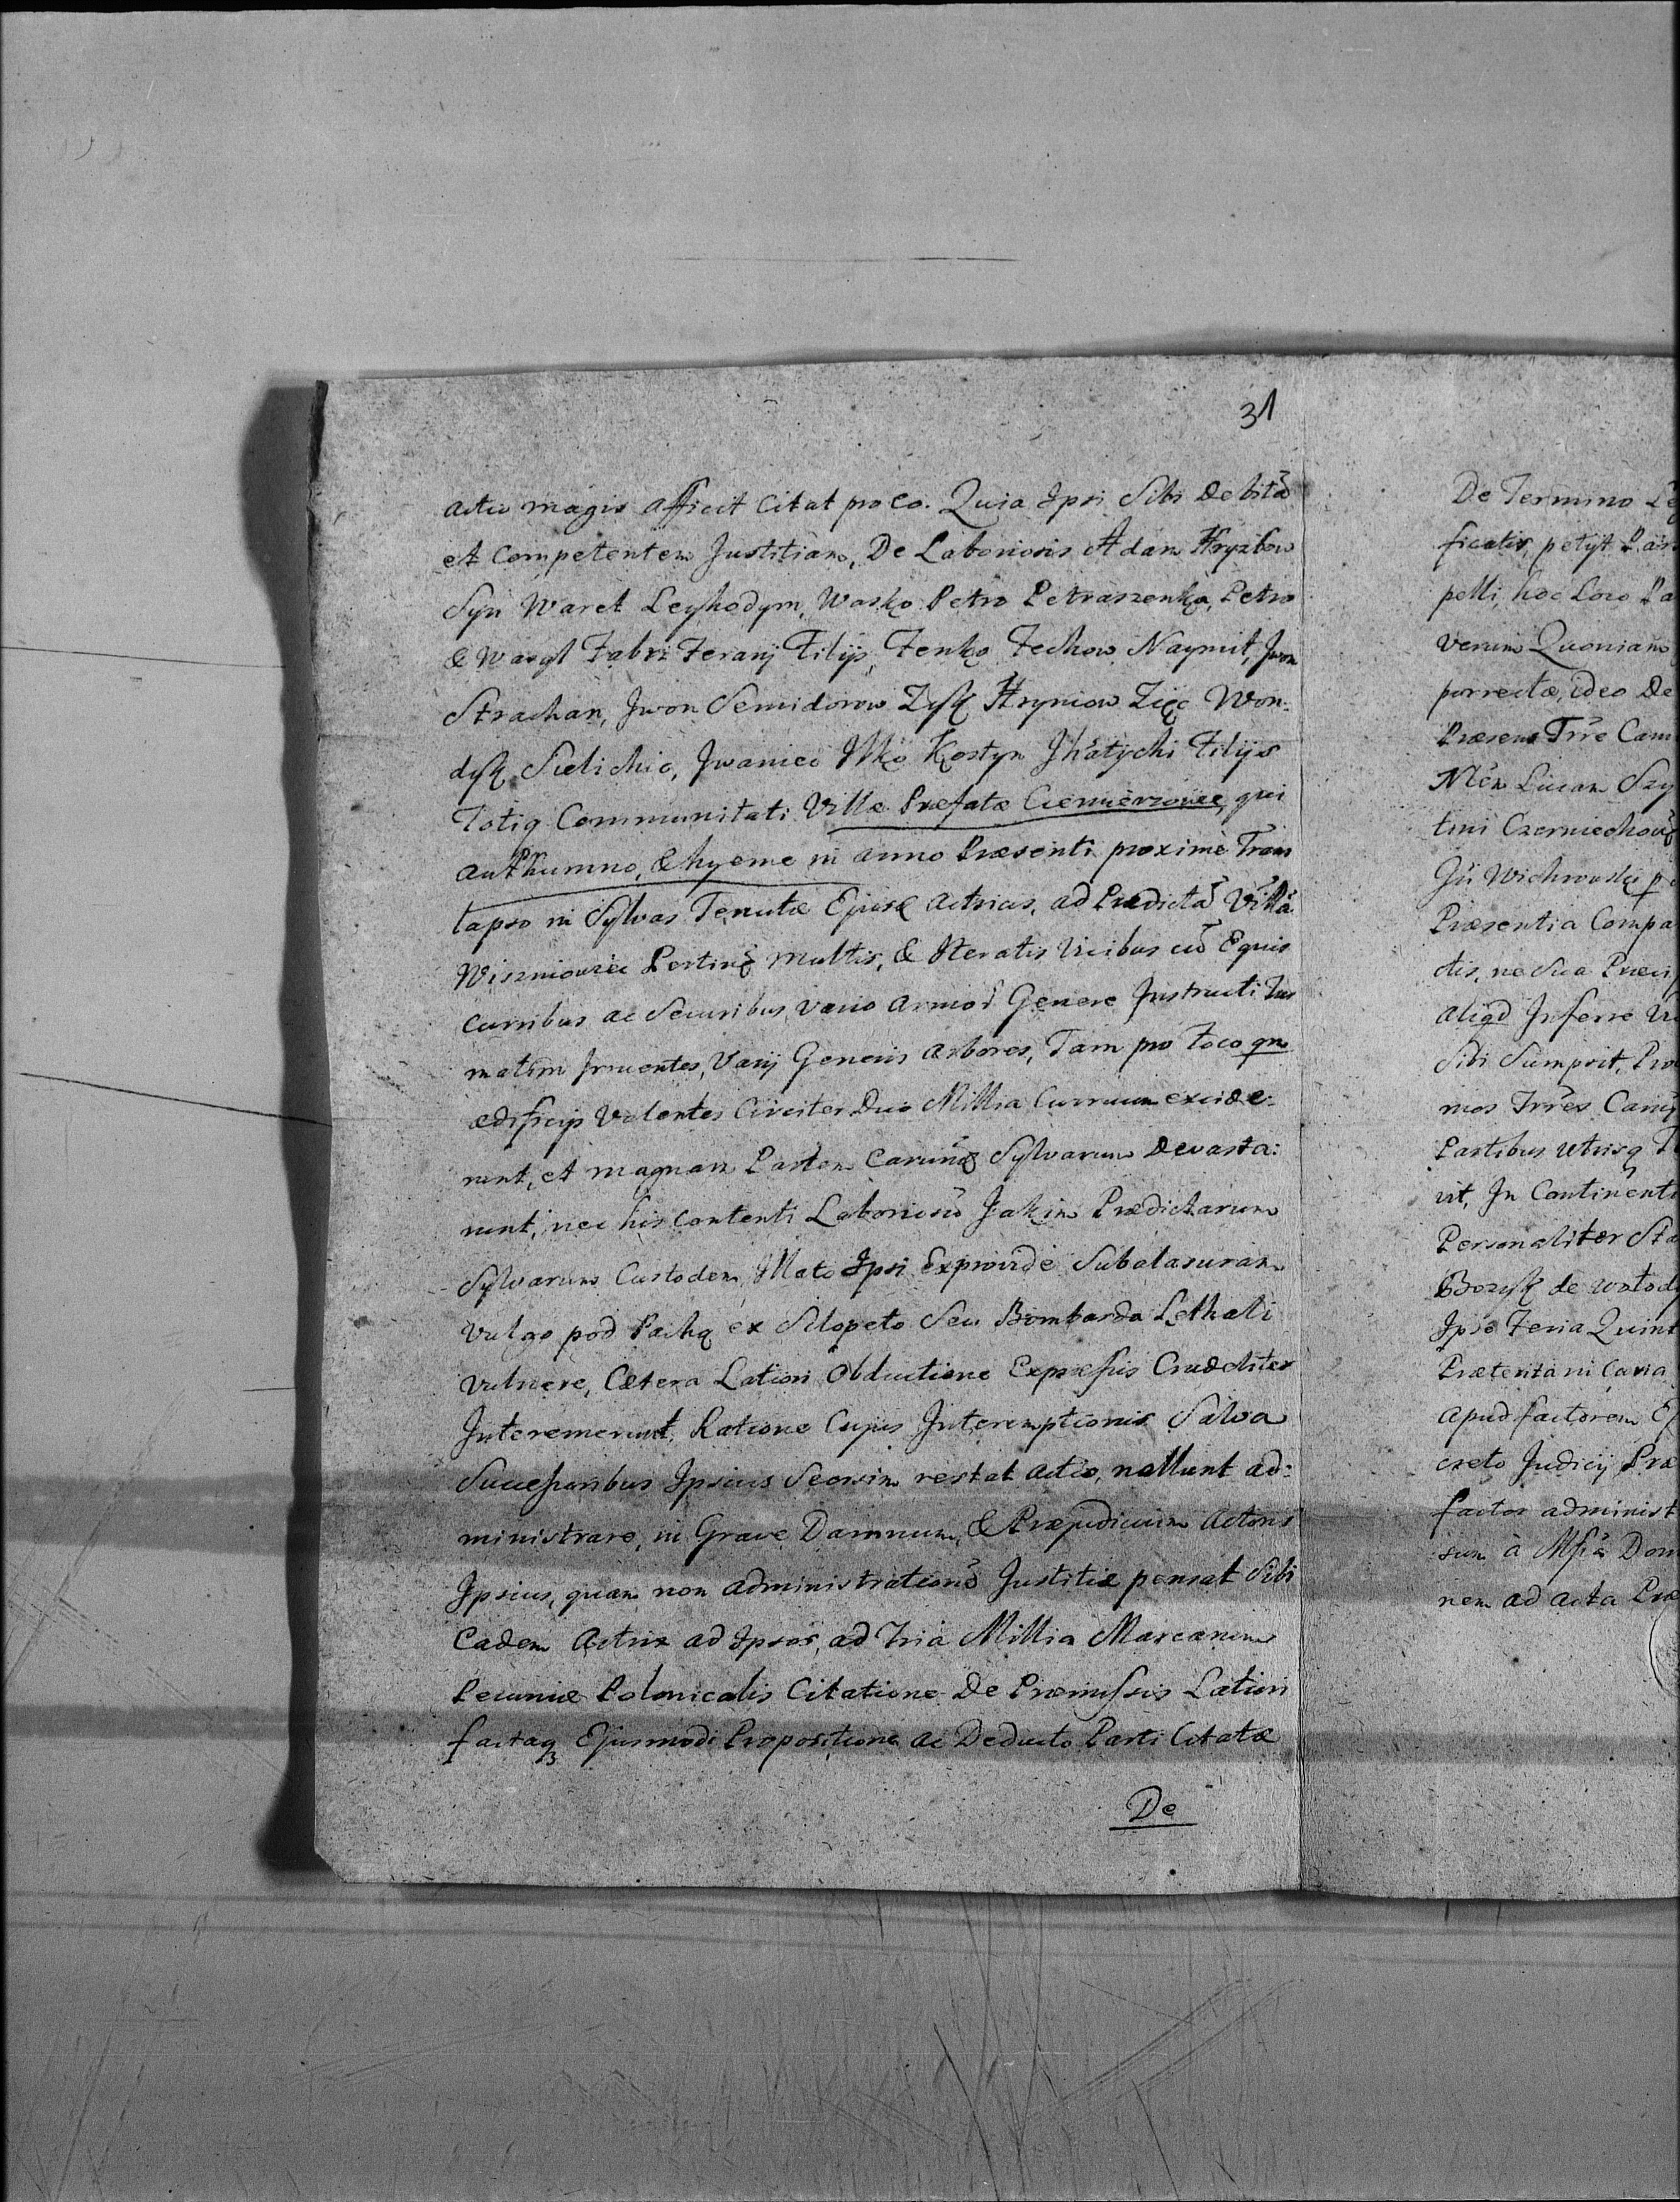 31
actio magis afficit citat pro eo. Quia Ipsi Sibi debitã
et Competentem Justitiam, De Laboriosis Adam Hryzkow
Syn Waret Leyhodym, Wasko Petro Petraszenko, Petro
& Wasyl Fabri Ferarij Filijs, Fenko Fechow Naymit, Jwon
Strachan, Jwon Semidorow Zysk Hryniow Zięc Won-
dysk Sielichio, Jwanico Ilko Kostyn Jhatychi Filijs
Totiq Communitati Villæ Præfatæ Ciemierzowce, qui
Authumno, & hyeme in anno Præsenti proximè Trans
lapso in Sylvas Tenutæ Ejusd Actricis, ad Prædictã Villã
Wiszniowiec Pertinẽ multis, & Iteratis Vicibus cũ Equis
Curribus ac Securibus vario armor Genere Instructi Tur
matim Irruentes, Varij Generis arbores, Tam pro foco qm
ædificijs Valentes Circiter Duo Millia Curruum excide-
runt, et magnam Partem earundẽ Sylvarum Devasta:
runt, nec his contenti Laboriosũ Jakim Prædictarum
Sylvarum Custodem, Illato Ipsi Exprovide Subalasuram
Vulgo pod Pachą ex Sclopeto Seu Bombarda Lethali
Vulnere, Cætera Latiori obductione Expressis Crudeliter
Interemerunt, Ratione Cujus Interemptionis Salva
Successoribus Ipsius Seorsim restat actio, nollunt ad:
ministrare, in Grave Damnum, & Præjudicium Actoris
Ipsius, quam non administrationẽ Justitiæ pensat Sibi
Eadem Actrix ad Ipsos, ad Tria Millia Marcarum
Pecuniæ Polonicalis Citatione De Præmissis Latiori
factaq Ejusmodi Propositione ac Deducto Parti Citatæ
De
De Termino
ficatis, petijt
pelli, hoc Loco
verum Quoniam
porrectæ, ideo De
Præsens Trre
Lucam
tini
Wichrowski
Præsentia
ctis, ne Sua
aliqd Inferre
Sibi Sumpsit,
mos Trres
Partibus utrisq
vit, In Continenti
Personaliter
de
Ipso Feria
Præterita in
apud factorem
creto Judicij
factor
sum à
nem ad acta